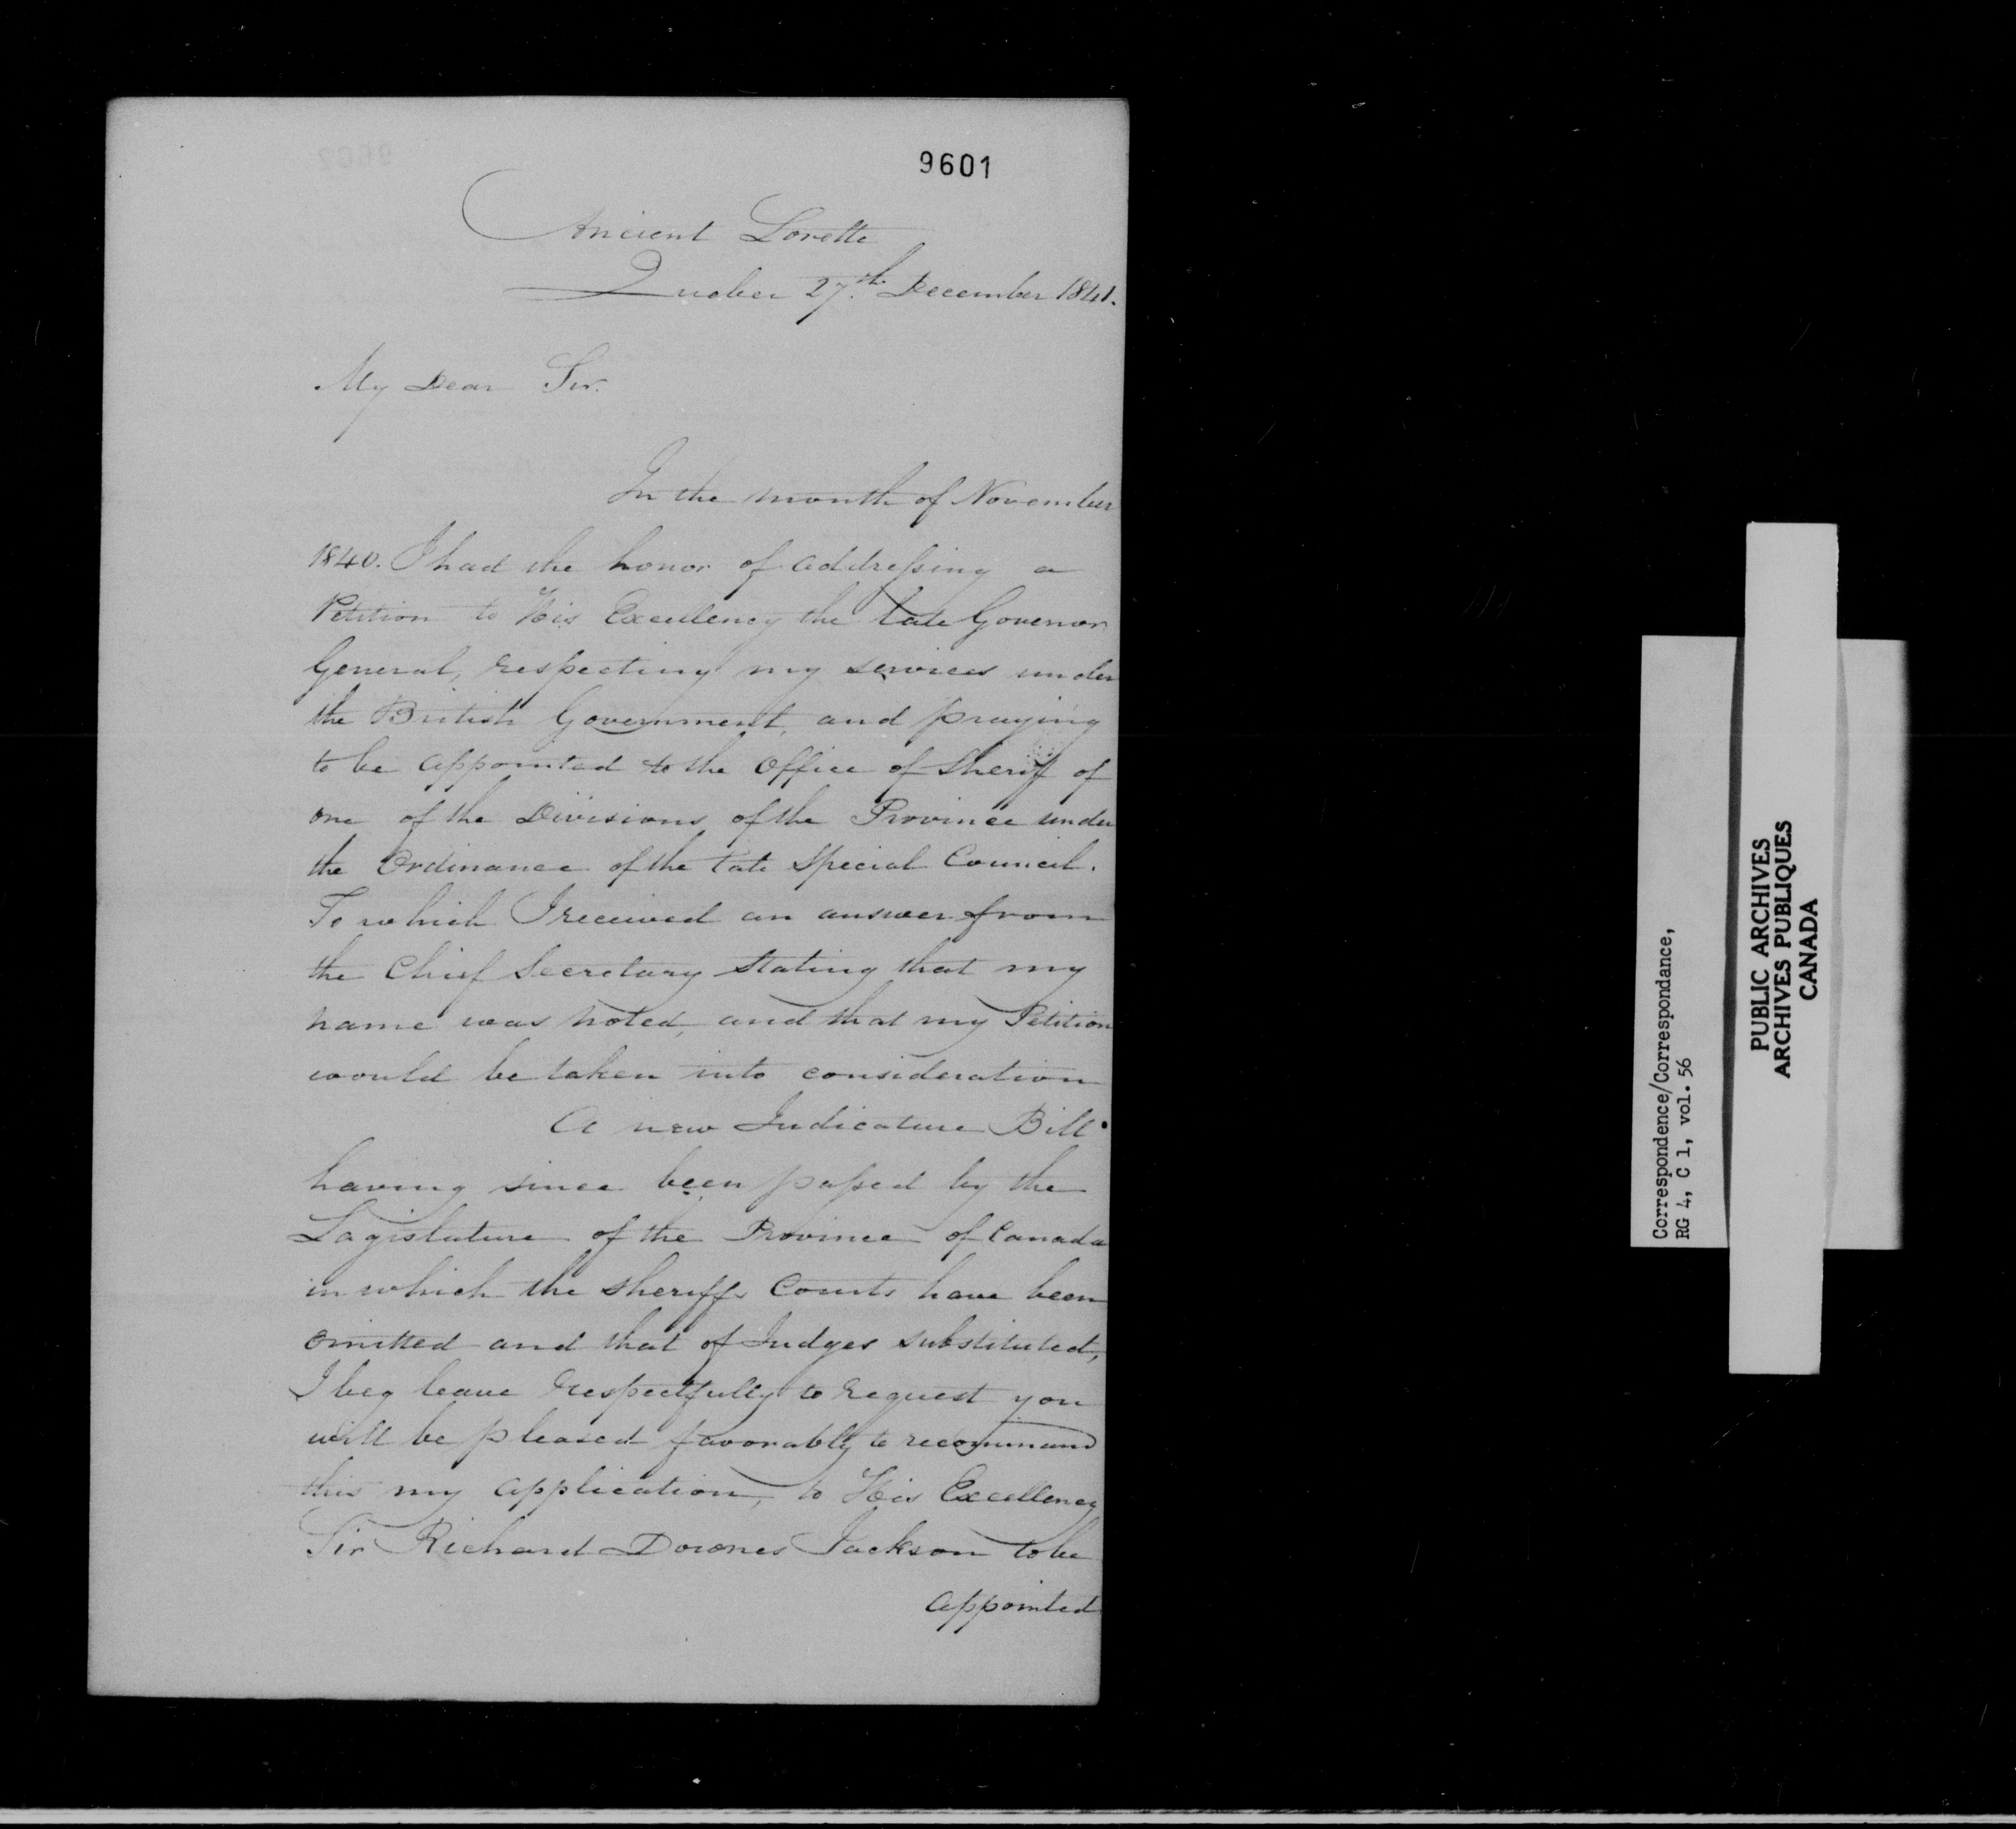 9601
Ancient Lorette
Quebec 27th December 1841.
My Dear Sir.
In the month of November
1840. I had the honor of addressing a
Petition to His Excellency the late Governor
General, respecting my services under
the British Government, and praying
to be appointed to the Office of Sheriff of
one of the Divisions of the Province under
the Ordinance of the late Special Council.
To which I received an answer from
the Chief Secretary stating that my
name was noted, and that my Petition
would be taken into consideration
A new Judicature Bill
having since been passed by the
Legislature of the Province of Canada
in which the Sheriffs Courts have been
omitted and that of Judges substituted,
I beg leave respectfully to request you
will be pleased favorably to recommend
this my application, to His Excellency
Sir Richard Downes Jackson to be
appointed
Correspondence/Correspondance,
RG 4, C 1, vol. 56
PUBLIC ARCHIVES
ARCHIVES PUBLIQUES
CANADA